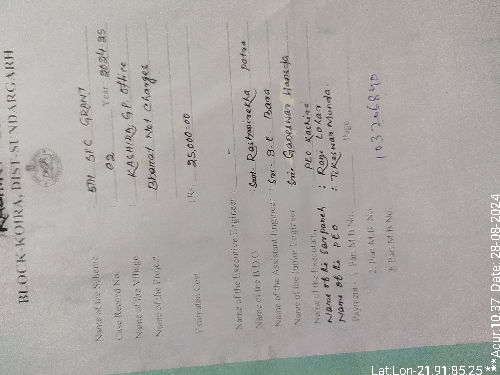 BLOCK-KOIRA, DIST-SUNDARGARH
Name of the Scheme 5TH SFC GRANT Year 2024-25
Case Record No. 02
Name of the Village : KASHIRA GP office
Name of the Project Bharat Net Charges
Estimated Cost : Rs. 25,000=00
Name of the Executive Engineer :
Name of the B.D.O : Smt. Rashmirekha Patra
Name of the Assistant Engineer : Sri. B.C Bara
Name of the Junior Engineer Sri. Ganeswar Hansda
Name of the Executant, PEO Kashira
Name of the Sarpanch : Rani Lohar
Name of the PEO : Tikeswar Munda.
Payment : 1. Par. M.B No. Page
2. Par. M.B No. 103206840
3. Par. M.B No.
Lat:Lon-21.91:85.25
***Acur:10.37, Date: 28-08-2024